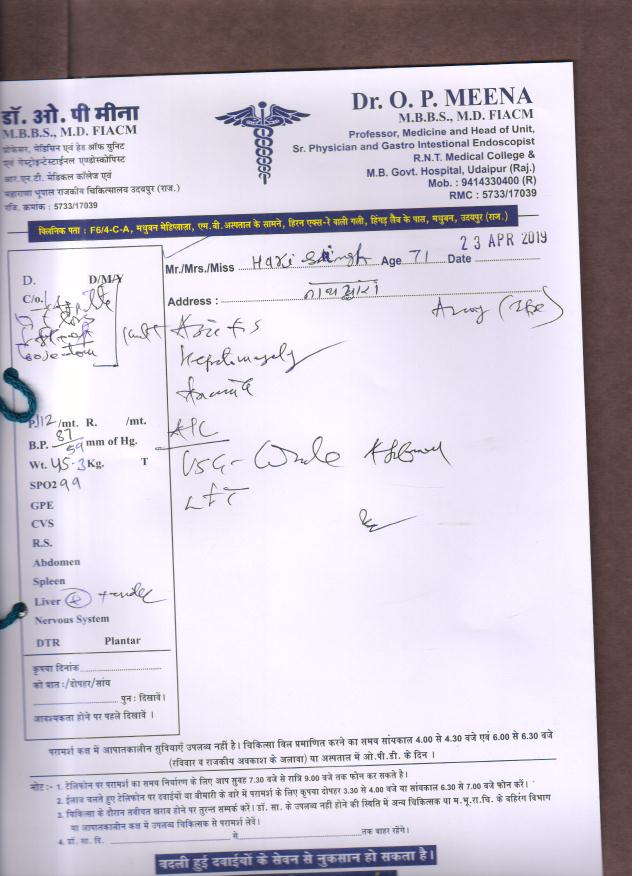 डॉ. ओ. पी मीना
M.B.B.S., M.D. FIACM
प्रोफेसर, मेडिसिन एवं हेड ऑफ युनिट
एवं गेस्ट्रोइन्टेस्टाईनल एण्डोस्कोपिस्ट
आर.एन.टी. मेडिकल कॉलेज एवं
महाराणा भूपाल राजकीय चिकित्सालय उदयपुर (राज.)
रजि. क्रमांक : 5733/17039
Dr. O. P. MEENA
M.B.B.S., M.D. FIACM
Professor, Medicine and Head of Unit,
Sr. Physician and Gastro Intestional Endoscopist
R.N.T. Medical College &
M.B. Govt. Hospital, Udaipur (Raj.)
Mob. : 9414330400 (R)
RMC : 5733/17039
क्लिनिक पता : F6/4-C-A, मधुबन मेडिप्लाजा, एम.बी.अस्पताल के सामने, हिरन एक्स-रे वाली गली, हिंगड़ लैब के पास, मधुबन, उदयपुर (राज.)
Mr./Mrs./Miss Hari Singh Age 71 Date 23 APR 2019
Address : नाथद्वारा
D. D/M/Y
C/o.
Hepatomegaly
P. 112 /mt. R. /mt.
B.P. 87/59 mm of Hg.
Wt. 45.3 Kg. T
SPO2 99
GPE
CVS
R.S.
Abdomen
Spleen
Liver + tender
Nervous System
DTR Plantar
USG - Whole Abdomen
LFT
कृपया दिनांक
को प्रात:/दोपहर/सांय
पुन: दिखावें।
आवश्यकता होने पर पहले दिखावें।
परामर्श कक्ष में आपातकालीन सुविधाएँ उपलब्ध नहीं है। चिकित्सा बिल प्रमाणित करने का समय सांयकाल 4.00 से 4.30 बजे एवं 6.00 से 6.30 बजे
(रविवार व राजकीय अवकाश के अलावा) या अस्पताल में ओ.पी.डी. के दिन।
नोट :- 1. टेलिफोन पर परामर्श का समय निर्धारण के लिए आप सुबह 7.30 बजे से रात्रि 9.00 बजे तक फोन कर सकते है।
2. ईलाज चलते हुए टेलिफोन पर दवाईयों या बीमारी के बारे में परामर्श के लिए कृपया दोपहर 3.30 से 4.00 बजे या सांयकाल 6.30 से 7.00 बजे फोन करें।
3. चिकित्सा के दौरान तबीयत खराब होने पर तुरन्त सम्पर्क करें। डॉ. सा. के उपलब्ध नहीं होने की स्थिति में अन्य चिकित्सक या म.भू.रा.चि. के बहिरंग विभाग
या आपातकालीन कक्ष में उपलब्ध चिकित्सक से परामर्श लेवें।
4. डॉ. सा. दि. से तक बाहर रहेंगे।
बदली हुई दवाईयों के सेवन से नुकसान हो सकता है।